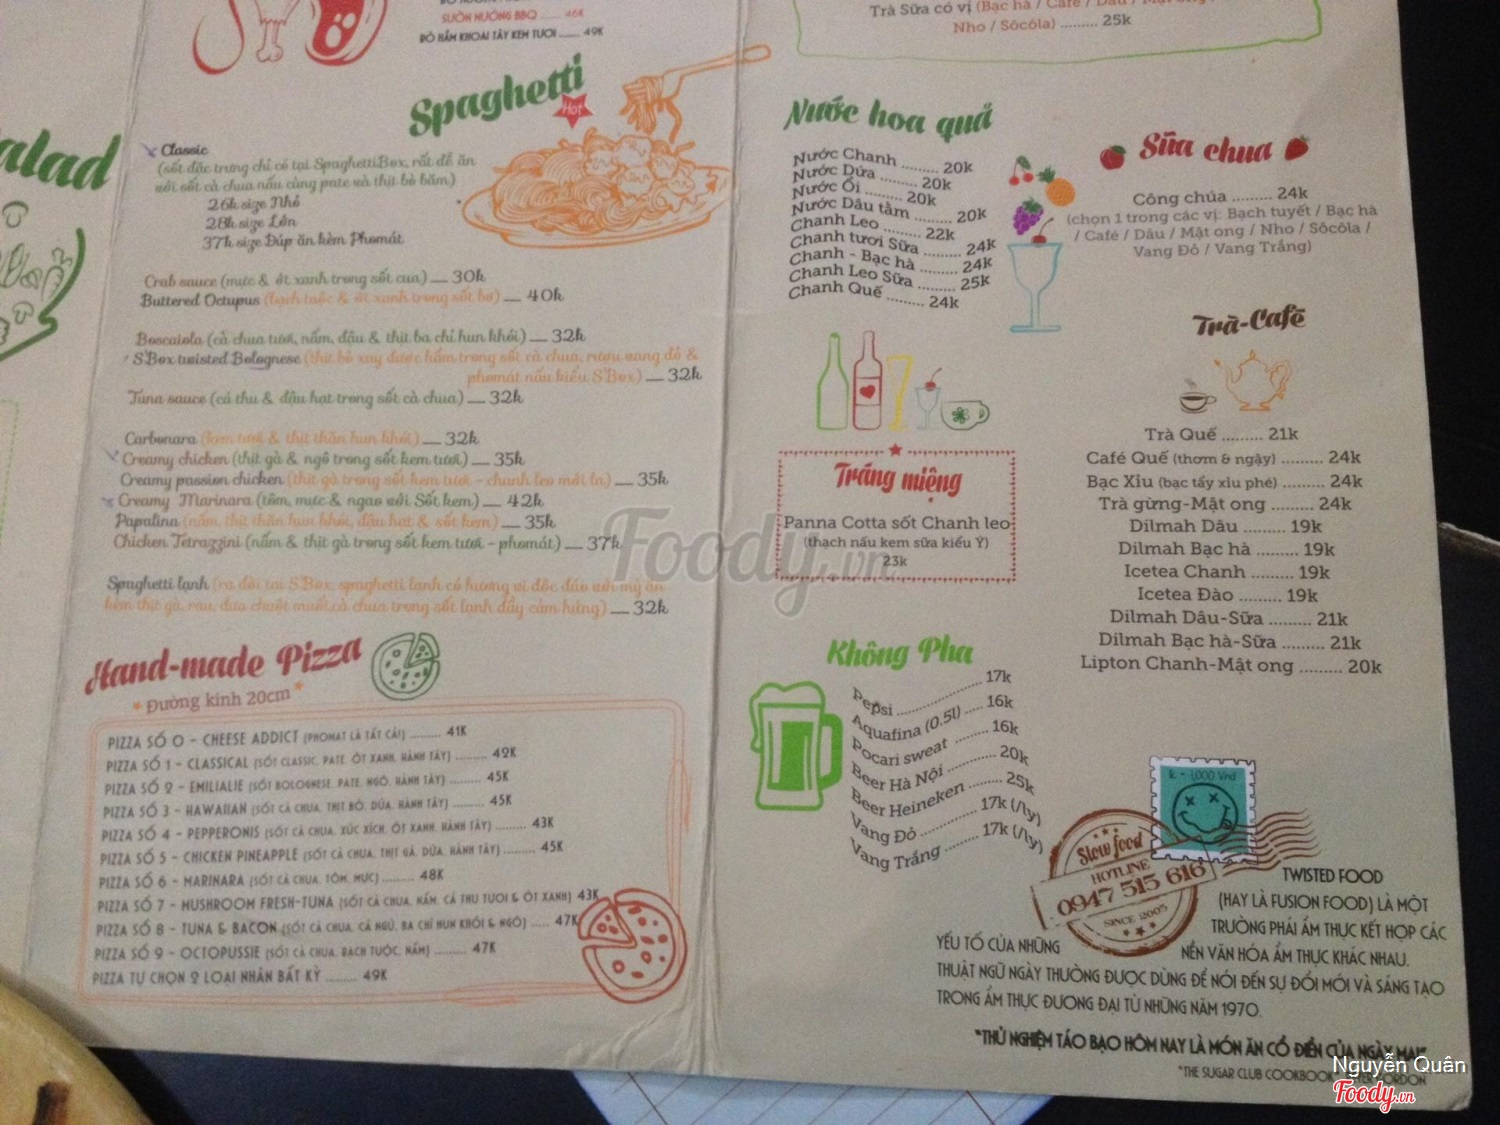 SƯỜN NƯỚNG BBQ ....... 46K
BÒ HẦM KHOAI TÂY KEM TƯƠI ...... 49K
Spaghetti
Hot
Classic
(sốt đặc trưng chỉ có tại SpaghettiBox, rất dễ ăn
với sốt cà chua nấu cùng pate và thịt bò băm)
26k size Nhỏ
28k size Lớn
37k size Đúp ăn kèm Phomát
Crab sauce (mực & ớt xanh trong sốt cua) __ 30k
Buttered Octupus (bạch tuộc & ớt xanh trong sốt bơ) __ 40k
Boscaiola (cà chua tươi, nấm, đậu & thịt ba chỉ hun khói) __ 32k
S'Box twisted Bolognese (thịt bò xay được hầm trong sốt cà chua, rượu vang đỏ &
phomát nấu kiểu S'Box) __ 32k
Tuna sauce (cá thu & đậu hạt trong sốt cà chua) __ 32k
Carbonara (kem tươi & thịt thăn hun khói) __ 32k
Creamy chicken (thịt gà & ngô trong sốt kem tươi) __ 35k
Creamy passion chicken (thịt gà trong sốt kem tươi - chanh leo mới lạ) __ 35k
Creamy Marinara (tôm, mực & ngao với Sốt kem) __ 42k
Papalina (nấm, thịt thăn hun khói, đậu hạt & sốt kem) __ 35k
Chicken Tetrazzini (nấm & thịt gà trong sốt kem tươi - phomát) __ 37k
Spaghetti lạnh (ra đời tại S'Box, spaghetti lạnh có hương vị độc đáo với mỳ ăn
kèm thịt gà, rau, dưa chuột muối, cà chua trong sốt lạnh đầy cảm hứng) __ 32k
Hand-made Pizza
* Đường kính 20cm *
PIZZA SỐ 0 - CHEESE ADDICT (PHOMAT LÀ TẤT CẢ!) ......... 41K
PIZZA SỐ 1 - CLASSICAL (SỐT CLASSIC, PATE, ỚT XANH, HÀNH TÂY) ......... 42K
PIZZA SỐ 2 - EMILIALIE (SỐT BOLOGNESE, PATE, NGÔ, HÀNH TÂY) ......... 45K
PIZZA SỐ 3 - HAWAIIAN (SỐT CÀ CHUA, THỊT BÒ, DỨA, HÀNH TÂY) ......... 45K
PIZZA SỐ 4 - PEPPERONIS (SỐT CÀ CHUA, XÚC XÍCH, ỚT XANH, HÀNH TÂY) ......... 43K
PIZZA SỐ 5 - CHICKEN PINEAPPLE (SỐT CÀ CHUA, THỊT GÀ, DỨA, HÀNH TÂY) ......... 45K
PIZZA SỐ 6 - MARINARA (SỐT CÀ CHUA, TÔM, MỰC) ......... 48K
PIZZA SỐ 7 - MUSHROOM FRESH-TUNA (SỐT CÀ CHUA, NẤM, CÁ THU TƯƠI & ỚT XANH) 43K
PIZZA SỐ 8 - TUNA & BACON (SỐT CÀ CHUA, CÁ NGỪ, BA CHỈ HUN KHÓI & NGÔ) ......... 47K
PIZZA SỐ 9 - OCTOPUSSIE (SỐT CÀ CHUA, BẠCH TUỘC, NẤM) ......... 47K
PIZZA TỰ CHỌN 2 LOẠI NHÂN BẤT KỲ ........ 49K
Trà Sữa có vị (Bạc hà / Café / Dâu / Mật ong /
Nho / Sôcôla) ......... 25k
Nước hoa quả
Nước Chanh ......... 20k
Nước Dứa ......... 20k
Nước Ổi ......... 20k
Nước Dâu tằm ......... 20k
Chanh Leo ......... 22k
Chanh tươi Sữa ......... 24k
Chanh - Bạc hà ......... 24k
Chanh Leo Sữa ......... 25k
Chanh Quế ......... 24k
Sữa chua
Công chúa ......... 24k
(chọn 1 trong các vị: Bạch tuyết / Bạc hà
/ Café / Dâu / Mật ong / Nho / Sôcôla /
Vang Đỏ / Vang Trắng)
Trà-Café
Trà Quế ......... 21k
Café Quế (thơm & ngậy) ......... 24k
Bạc Xỉu (bạc tẩy xỉu phé) ......... 24k
Trà gừng-Mật ong ......... 24k
Dilmah Dâu ......... 19k
Dilmah Bạc hà ......... 19k
Icetea Chanh ......... 19k
Icetea Đào ......... 19k
Dilmah Dâu-Sữa ......... 21k
Dilmah Bạc hà-Sữa ......... 21k
Lipton Chanh-Mật ong ......... 20k
Tráng miệng
Panna Cotta sốt Chanh leo
(thạch nấu kem sữa kiểu Ý)
23k
Không Pha
Pepsi ......... 17k
Aquafina (0.5l) ..... 16k
Pocari sweat ........ 16k
Beer Hà Nội ......... 20k
Beer Heineken ......... 25k
Vang Đỏ ......... 17k (/ly)
Vang Trắng ......... 17k (/ly)
k = 1.000 Vnd
Slow food
HOTLINE
0947 515 616
SINCE 2005
TWISTED FOOD
(HAY LÀ FUSION FOOD) LÀ MỘT
TRƯỜNG PHÁI ẨM THỰC KẾT HỢP CÁC
YẾU TỐ CỦA NHỮNG NỀN VĂN HÓA ẨM THỰC KHÁC NHAU.
THUẬT NGỮ NGÀY THƯỜNG ĐƯỢC DÙNG ĐỂ NÓI ĐẾN SỰ ĐỔI MỚI VÀ SÁNG TẠO
TRONG ẨM THỰC ĐƯƠNG ĐẠI TỪ NHỮNG NĂM 1970.
"THỬ NGHIỆM TÁO BẠO HÔM NAY LÀ MÓN ĂN CỔ ĐIỂN CỦA NGÀY MAI"
"THE SUGAR CLUB COOKBOOK"
alad
Foody.vn
Nguyễn Quân
Foody.vn